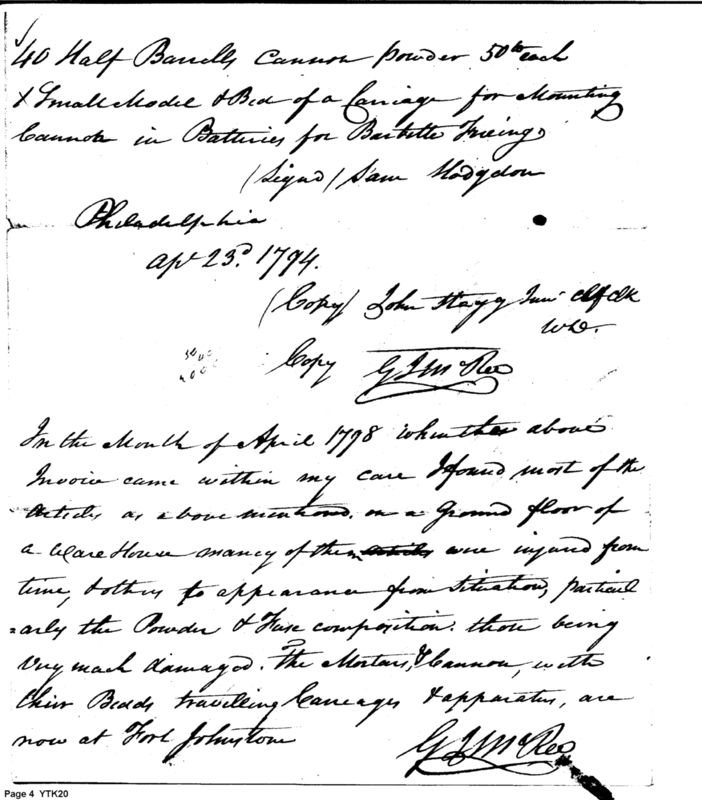 40 Half Barrells Cannon Powder 50 lb each
1 Small Model & Bed of a Carriage for Mounting
Cannon in Batteries for Barbette Fireing
(Signd) Sam Hodgdon
Philadelphia
Apl 23d. 1794.
(Copy) John Stagg Junr Chf Clk
WD.
Copy G J McRee
In the Month of April 1798 When the above
Invoice came within my care I found most of the
Articles as above mentiond. on a Ground floor of
a Ware House many of them were injured from
time, & others to appearance from Situation, particul
=arly the Powder & Fuse composition. those being
very much damaged. The Mortars, & Cannon, with
thier Bedds travelling Carreages & apparatus, are
now at Fort Johnston
G J McRee
Page 4 YTK20